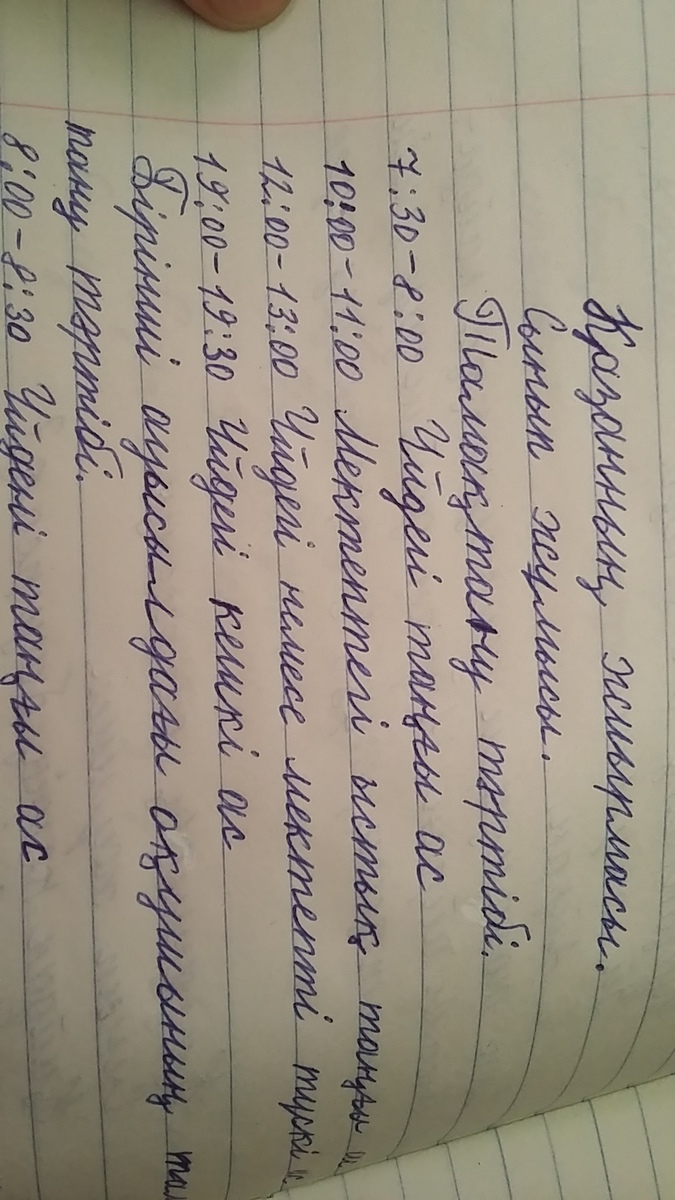 Қазанның жиырмасы.
Сынып жұмысы.
Тамақтану тәртібі.
7:30-8:00 Үйдегі таңғы ас
10:00-11:00 Мектептегі ыстық таңғы
12:00-13:00 Үйдегі немесе мектепті түскі
19:00-19:30 Үйдегі кешкі ас
Бірінші ауысымдағы оқушының та
тану тәртібі.
8:00-8:30 Үйдегі таңғы ас